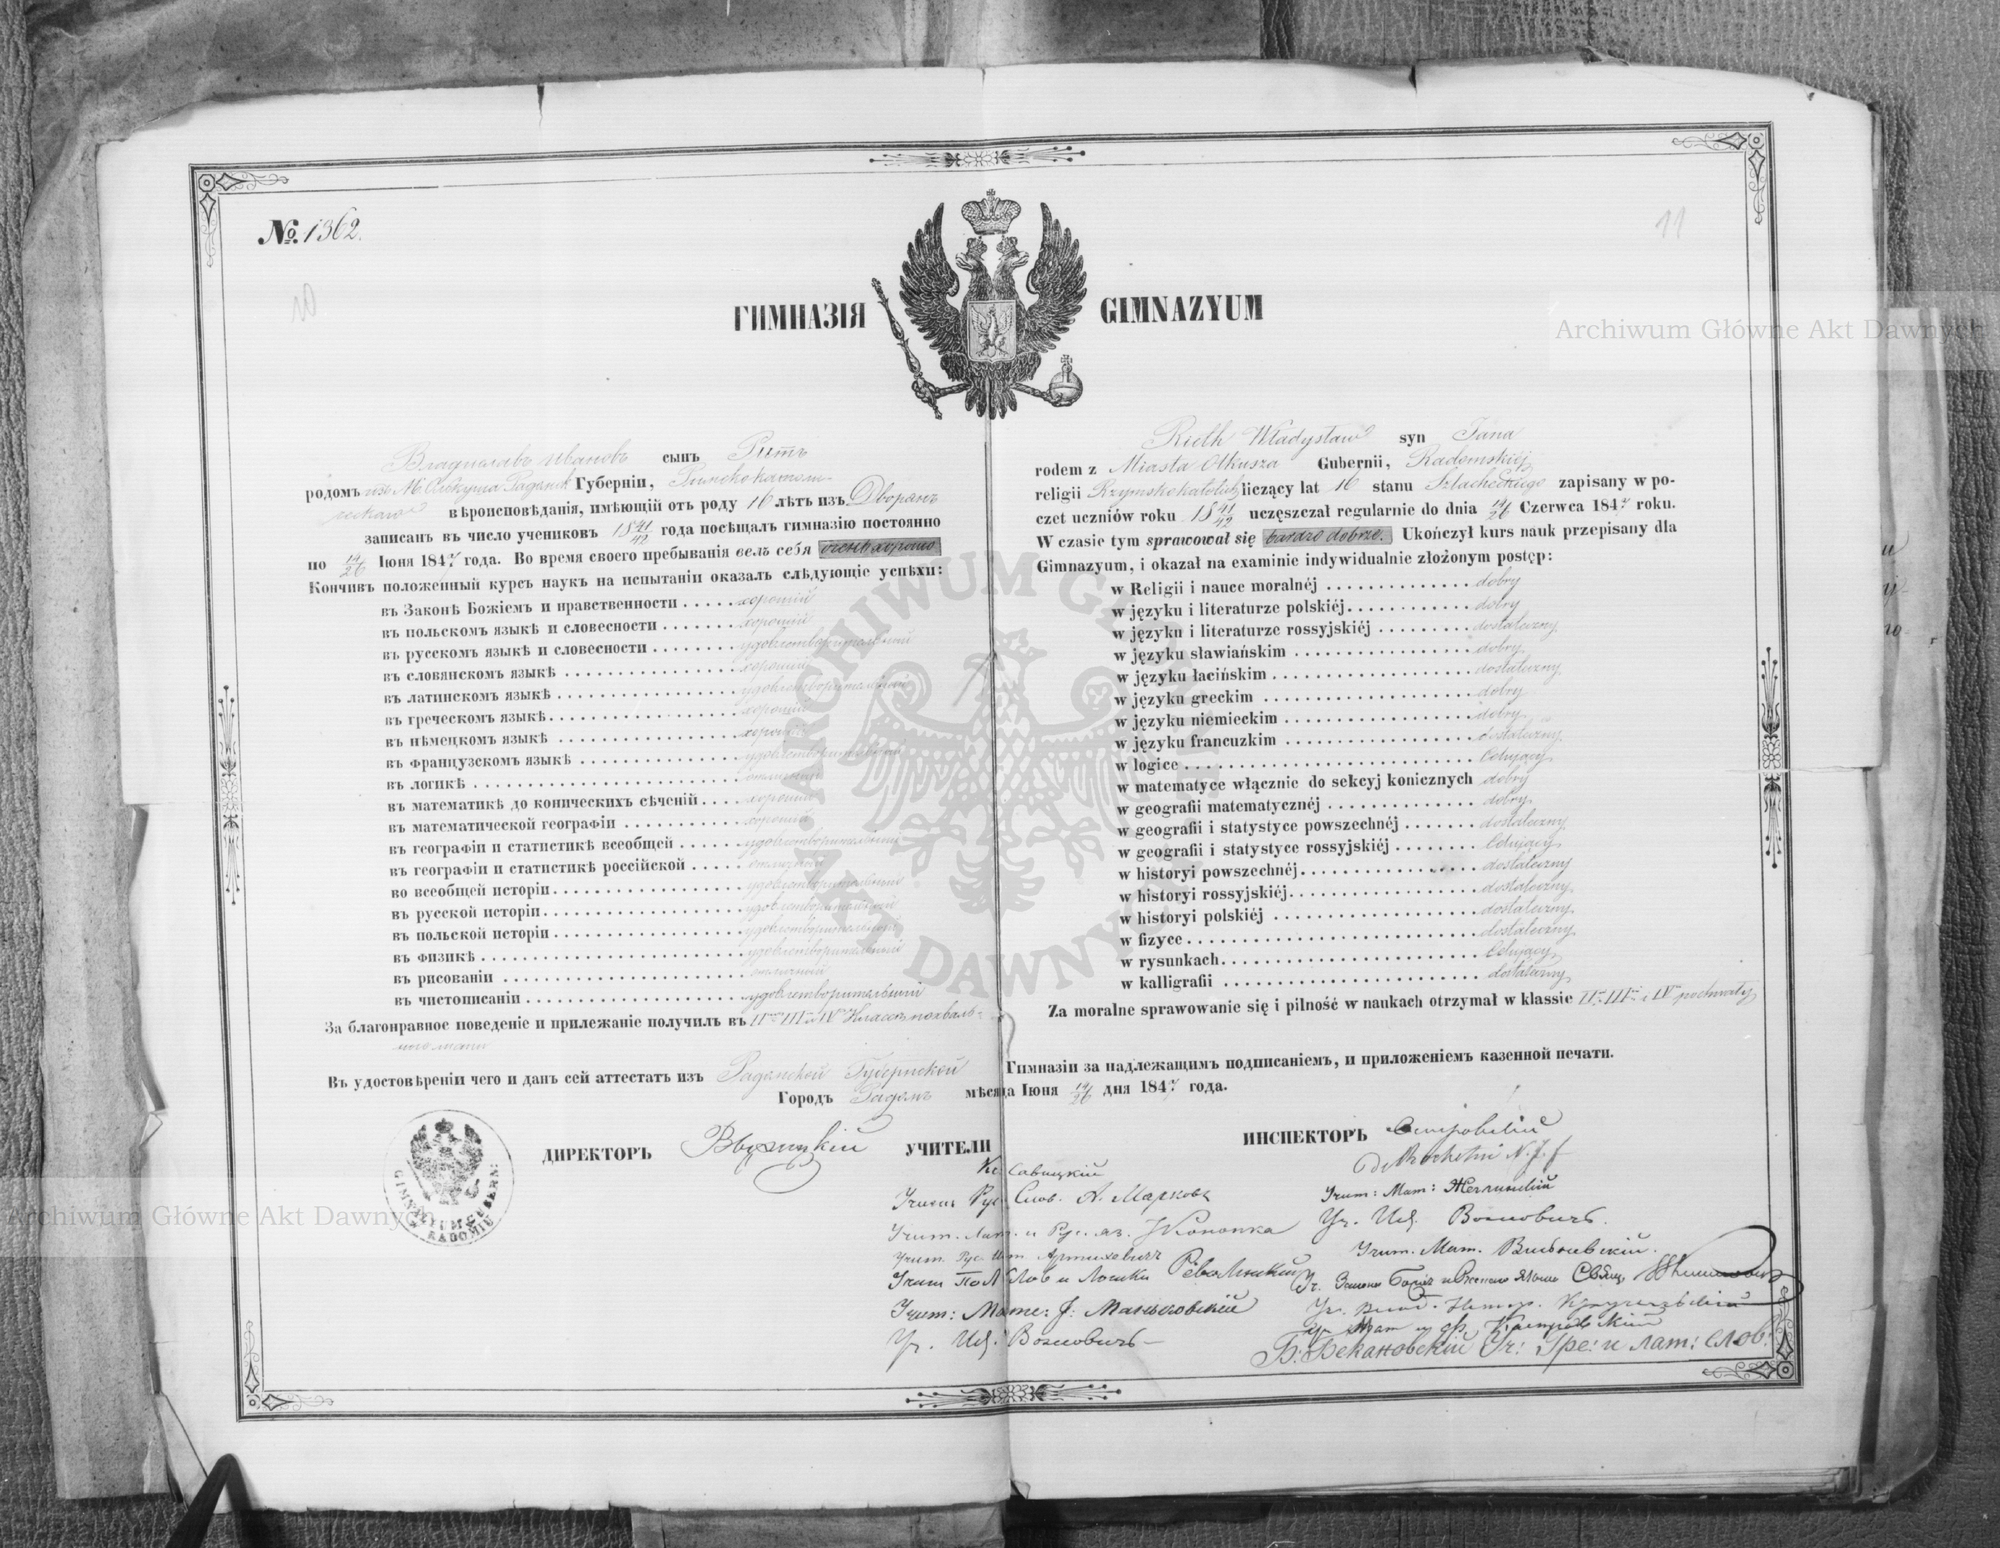 № 1362.
10
11
ГИМНАЗІЯ
GIMNAZYUM
Владиславъ Ивановъ сынъ Ритъ
родомъ изъ М. Олькуша Радомск Губерніи, Римскокатоли-
ческаго вѣроисповѣданія, имѣющій отъ роду 16 лѣтъ изъ Дворянъ
записанъ въ число учениковъ 18 41/42 года посѣщалъ гимназію постоянно
по 14/26 Іюня 1847 года. Во время своего пребыванія велъ себя очень хорошо
Кончивъ положенный курсъ наукъ на испытаніи оказалъ слѣдующіе успѣхи:
въ Законѣ Божіемъ и нравственности ..... хорошій
въ польскомъ языкѣ и словесности ....... хорошій
въ русскомъ языкѣ и словесности ........ удовлетворительный
въ словянскомъ языкѣ ........ хорошій
въ латинскомъ языкѣ ........ удовлетворительный
въ греческомъ языкѣ ........ хорошій
въ нѣмецкомъ языкѣ ........ хорошій
въ Французскомъ языкѣ ........ удовлетворительный
въ логикѣ ........ отличный
въ математикѣ до коническихъ сѣченій .... хорошій
въ математической географіи ........ хорошій
въ географіи и статистикѣ всеобщей ...... удовлетворительный
въ географіи и статистикѣ россійской ..... отличный
во всеобщей исторіи ........ удовлетворительный
въ русской исторіи ........ удовлетворительный
въ польской исторіи ........ удовлетворительный
въ физикѣ ........ удовлетворительный
въ рисованіи ........ отличный
въ чистописаніи ........ удовлетворительный
За благонравное поведеніе и прилежаніе получилъ въ II III и IV Классѣ похваль-
Rieth Władysław syn Jana
rodem z Miasta Olkusza Gubernii, Radomskiéj
religii Rzymskokatolick liczący lat 16 stanu Szlacheckiego zapisany w po-
czet uczniów roku 18 41/42 uczęszczał regularnie do dnia 14/26 Czerwca 1847 roku.
W czasie tym sprawował się bardzo dobrze. Ukończył kurs nauk przepisany dla
Gimnazyum, i okazał na examinie indywidualnie złożonym postęp:
w Religii i nauce moralnéj ........ dobry
w języku i literaturze polskiéj ........ dobry
w języku i literaturze rossyjskiéj ........ dostateczny
w języku sławiańskim ........ dobry
w języku łacińskim ........ dostateczny
w języku greckim ........ dobry
w języku niemieckim ........ dobry
w języku francuzkim ........ dostateczny
w logice ........ Celujący
w matematyce włącznie do sekcyj konicznych dobry
w geografii matematycznéj ........ dobry
w geografii i statystyce powszechnéj ....... dostateczny
w geografii i statystyce rossyjskiéj ........ Celujący
w historyi powszechnéj ........ dostateczny
w historyi rossyjskiéj ........ dostateczny
w historyi polskiéj ........ dostateczny
w fizyce ........ dostateczny
w rysunkach ........ Celujący
w kalligrafii ........ dostateczny
Za moralne sprawowanie się i pilność w naukach otrzymał w klassie II III i IV pochwały
Въ удостовѣреніи чего и данъ сей аттестатъ изъ Радомской Губернской Гимназіи за надлежащимъ подписаніемъ, и приложеніемъ казенной печати.
Городъ Радомъ мѣсяца Іюня 14/26 дня 1847 года.
ДИРЕКТОРЪ
УЧИТЕЛИ
ИНСПЕКТОРЪ
Кс. Савицкій
Учит. Рус. Слов. А. Марковъ
Учит: Мат: Желинскій
Учит. Лат. и Рус. яз. Кононка
Уч. Ис. Возновичъ.
Учит. Рус. Ист Артиховичъ
Учит. Мат.
Учит Пол Слов и Логики
Учит: Мате: Маньковскій
Уч. Ис. Возновичъ
Б: Бекановскій Уч: Гре: и лат: слов:
GIMNAZYUM GUBERN: RADOMIU
Archiwum Główne Akt Dawnych
Archiwum Główne Akt Dawnych
ARCHIWUM GŁÓWNE AKT DAWNYCH